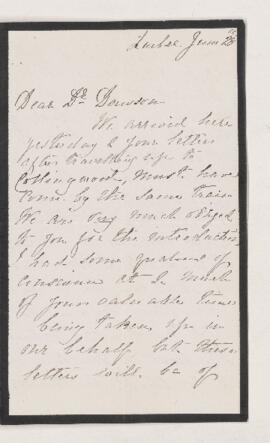 Quebec June 28th
Dear Dr. Dawson
We arrived here
yesterday & your letters
after travelling up to
Collingwood, must have
come by the same train
We are very much obliged
to you for the introductions
I had some qualms of
conscience at so much
of your valuable time
being taken up in
our behalf but these
letters will be of